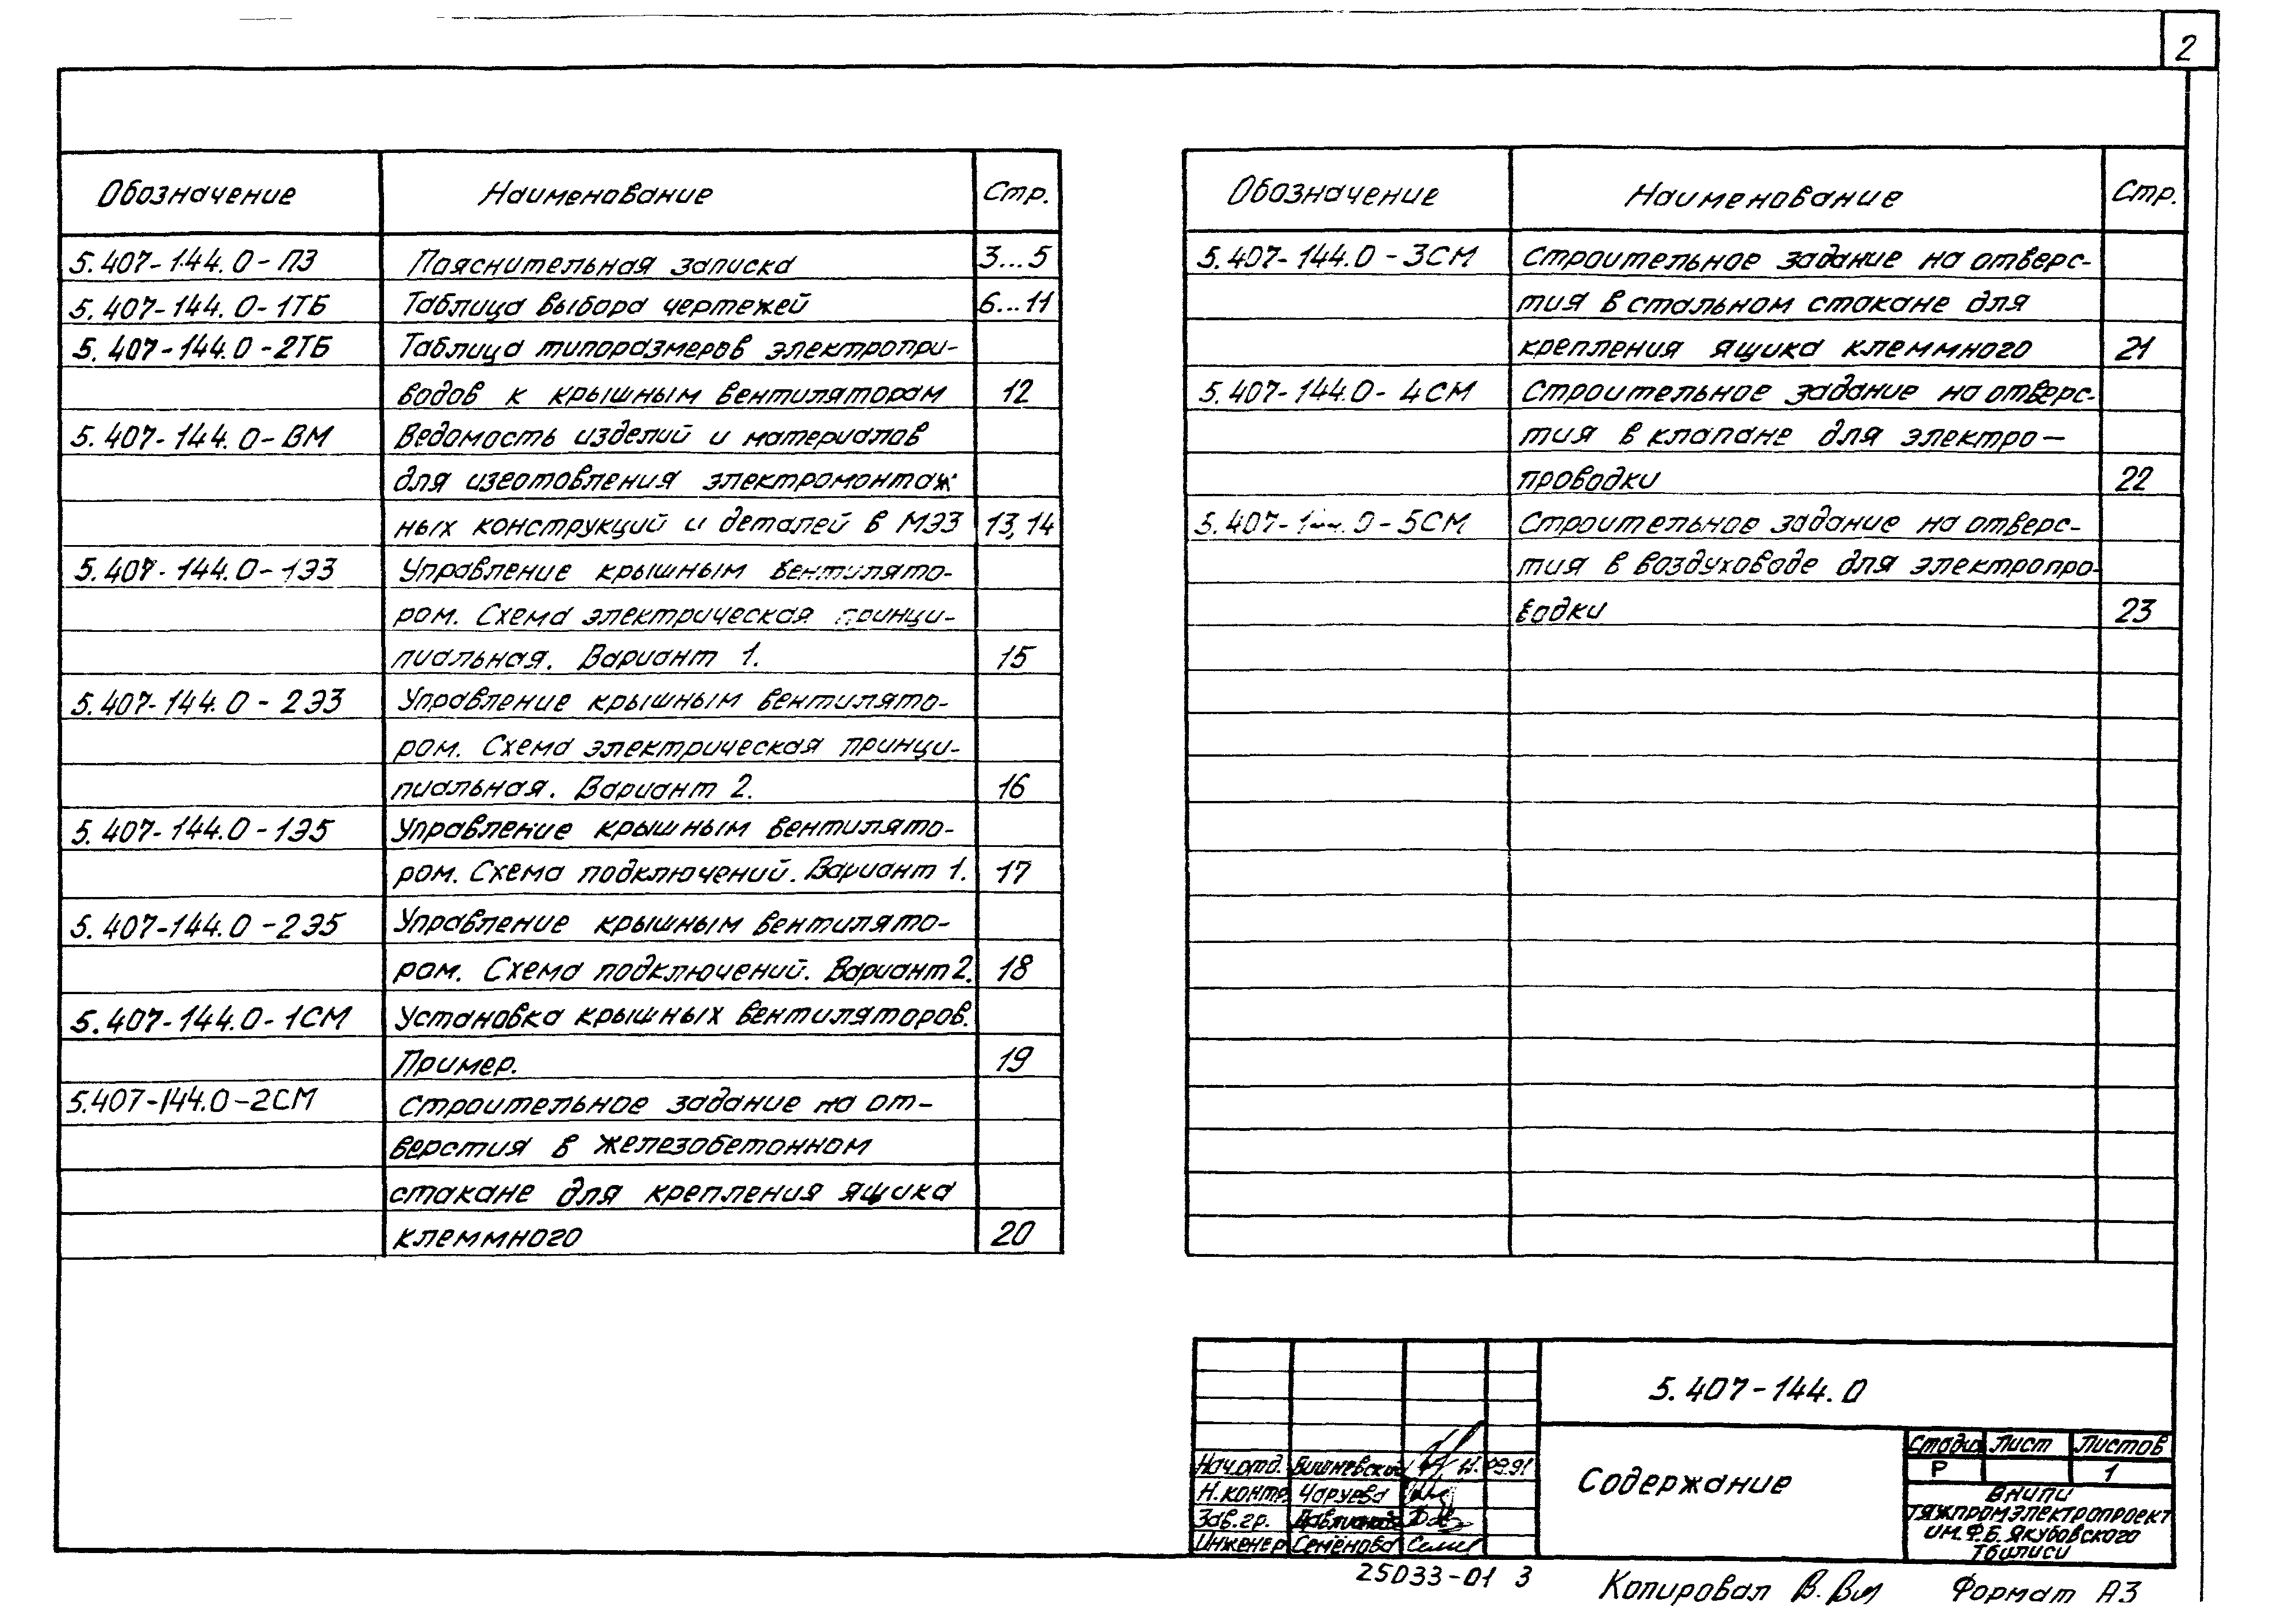 2
Обозначение Наименование Стр.
5.407-144.0-ПЗ Пояснительная записка 3...5
5.407-144.0-1ТБ Таблица выбора чертежей 6...11
5.407-144.0-2ТБ Таблица типоразмеров электропри-
водов к крышным вентиляторам 12
5.407-144.0-ВМ Ведомость изделий и материалов
для изготовления электромонтаж
ных конструкций и деталей в МЭЗ 13,14
5.407-144.0-1Э3 Управление крышным вентилято-
ром. Схема электрическая принци-
пиальная. Вариант 1. 15
5.407-144.0-2Э3 Управление крышным вентилято-
ром. Схема электрическая принци-
пиальная. Вариант 2. 16
5.407-144.0-1Э5 Управление крышным вентилято-
ром. Схема подключений. Вариант 1. 17
5.407-144.0-2Э5 Управление крышным вентилято-
ром. Схема подключений. Вариант 2. 18
5.407-144.0-1СМ Установка крышных вентиляторов.
Пример. 19
5.407-144.0-2СМ Строительное задание на от-
верстия в железобетонном
стакане для крепления ящика
клеммного 20
Обозначение Наименование Стр.
5.407-144.0-3СМ Строительное задание на отверс-
тия в стальном стакане для
крепления ящика клеммного 21
5.407-144.0-4СМ Строительное задание на отверс-
тия в клапане для электро-
проводки 22
5.407-144.0-5СМ Строительное задание на отверс-
тия в воздуховоде для электропро-
водки 23
5.407-144.0
Нач.отд. Вишневский 09.91
Н.контр. Чаруева
Зав.гр.
Инженер Семёнова
Содержание
Стадия Лист Листов
Р 1
ВНИПИ
Тяжпромэлектропроект
им. Ф.Б. Якубовского
Тбилиси
25033-01 3
Копировал Формат А3